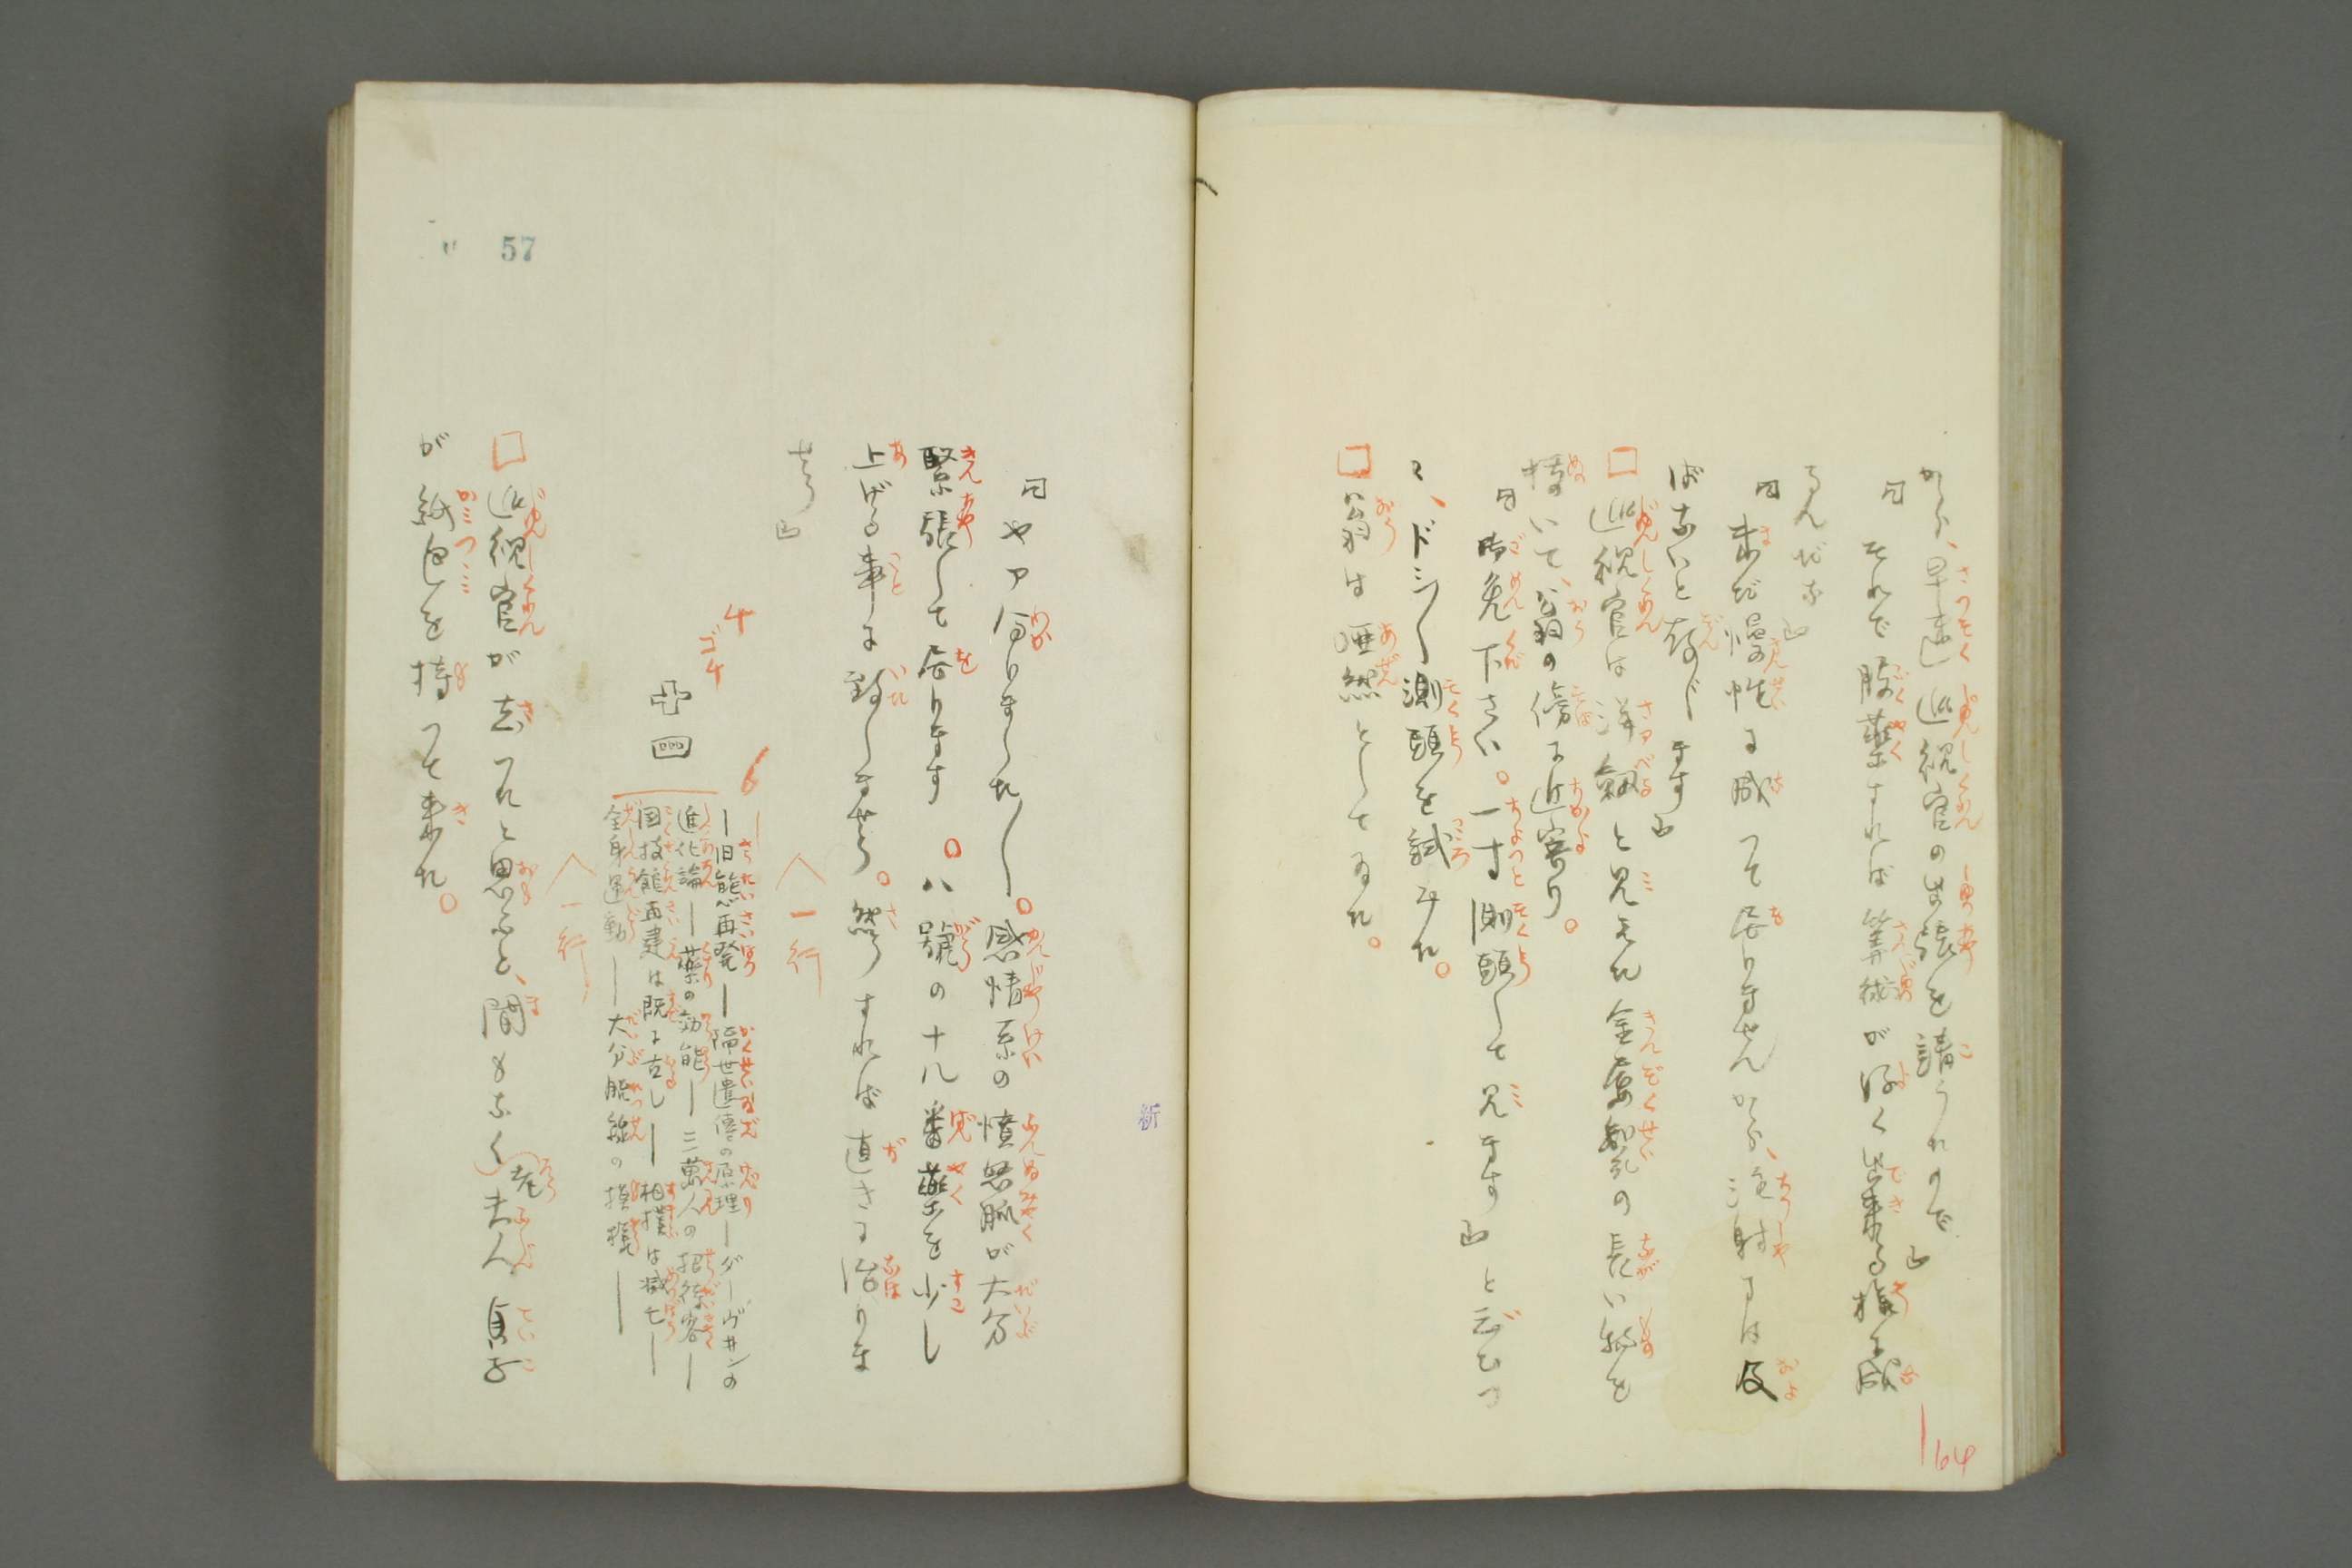 から、早速巡視官の出張を請うたので」
「それで服薬すれば算術が好く出来る様に成
るんだな」
「未だ慢性に成つて居りませんから、注射には及
ばないと存じます」
巡視官は洋劍と見えた金屬製の長い物を
抜いて、翁の傍に近寄り。
「御免下さい。一寸測頭して見ます」と云ひつ
ゝ、ドシ〱測頭を試みた。
翁は唖然としてゐた。
164
「ヤア分りました〱。感情系の憤怒脈が大分
緊張して居ります。八號の十八番薬を少し
上げる事に致しませう。然うすれば直きに治りま
せう」
一行
4
ゴチ
廿四
6
―旧態再発―隔世遺傳の原理―ダーヴヰンの
進化論―薬の効能―三萬人の招待客―
国技館再建は既に古し―相撲は滅亡―
全身運動―大分脱線の模様―
一行
巡視官が去つたと思ふと、間もなく老夫人貞子
が紙包を持つて来た。
57